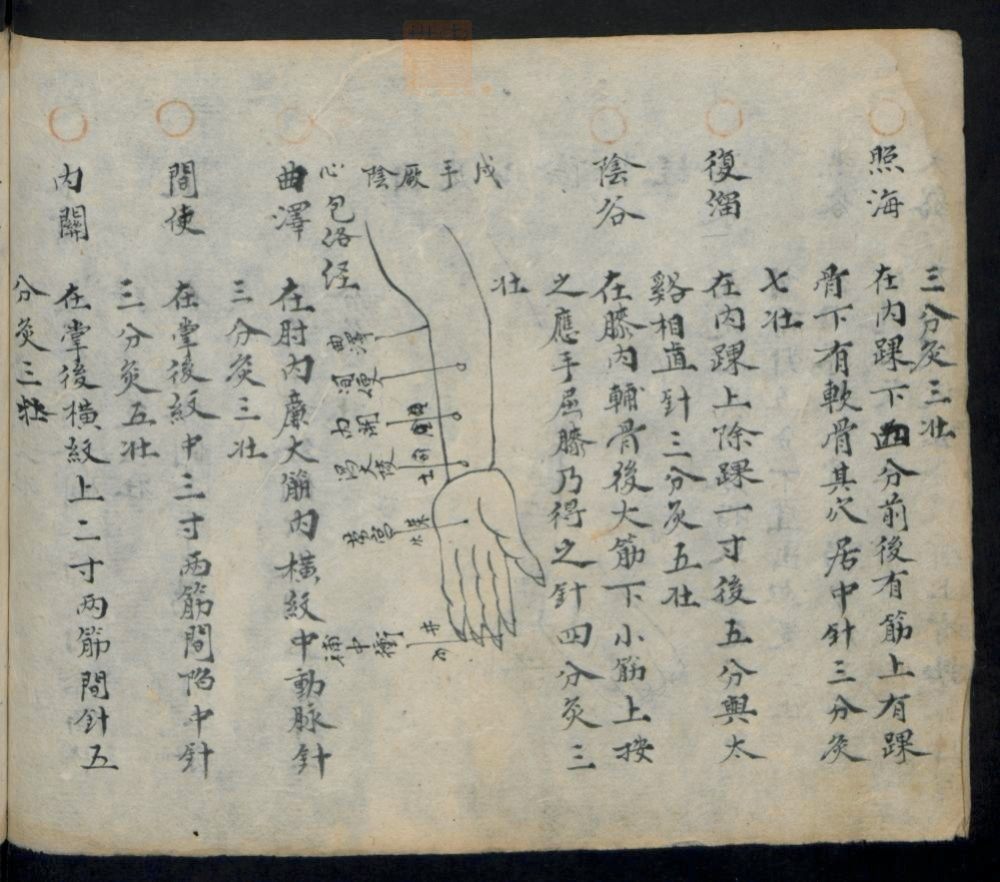 三分灸三壮
照海
在内踝下四分前後有筋上有踝
骨下有軟骨其穴居中針三分灸
七壮
復溜
在内踝上除踝一寸後五分與太
谿相直針三分灸五壮
陰谷
在膝内輔骨後大筋下小筋上按
之應手屈膝乃得之針四分灸三
壮
戌手厥陰
心包佫経
曲澤
間使
内関
勞宮
中衝
井
曲澤
在肘内廉大筋内横紋中動脉針
三分灸三壮
間使
在掌後紋中三寸两筋間陷中針
三分灸五壮
内關
在掌後横紋上二寸两筋間針五
分灸三壮